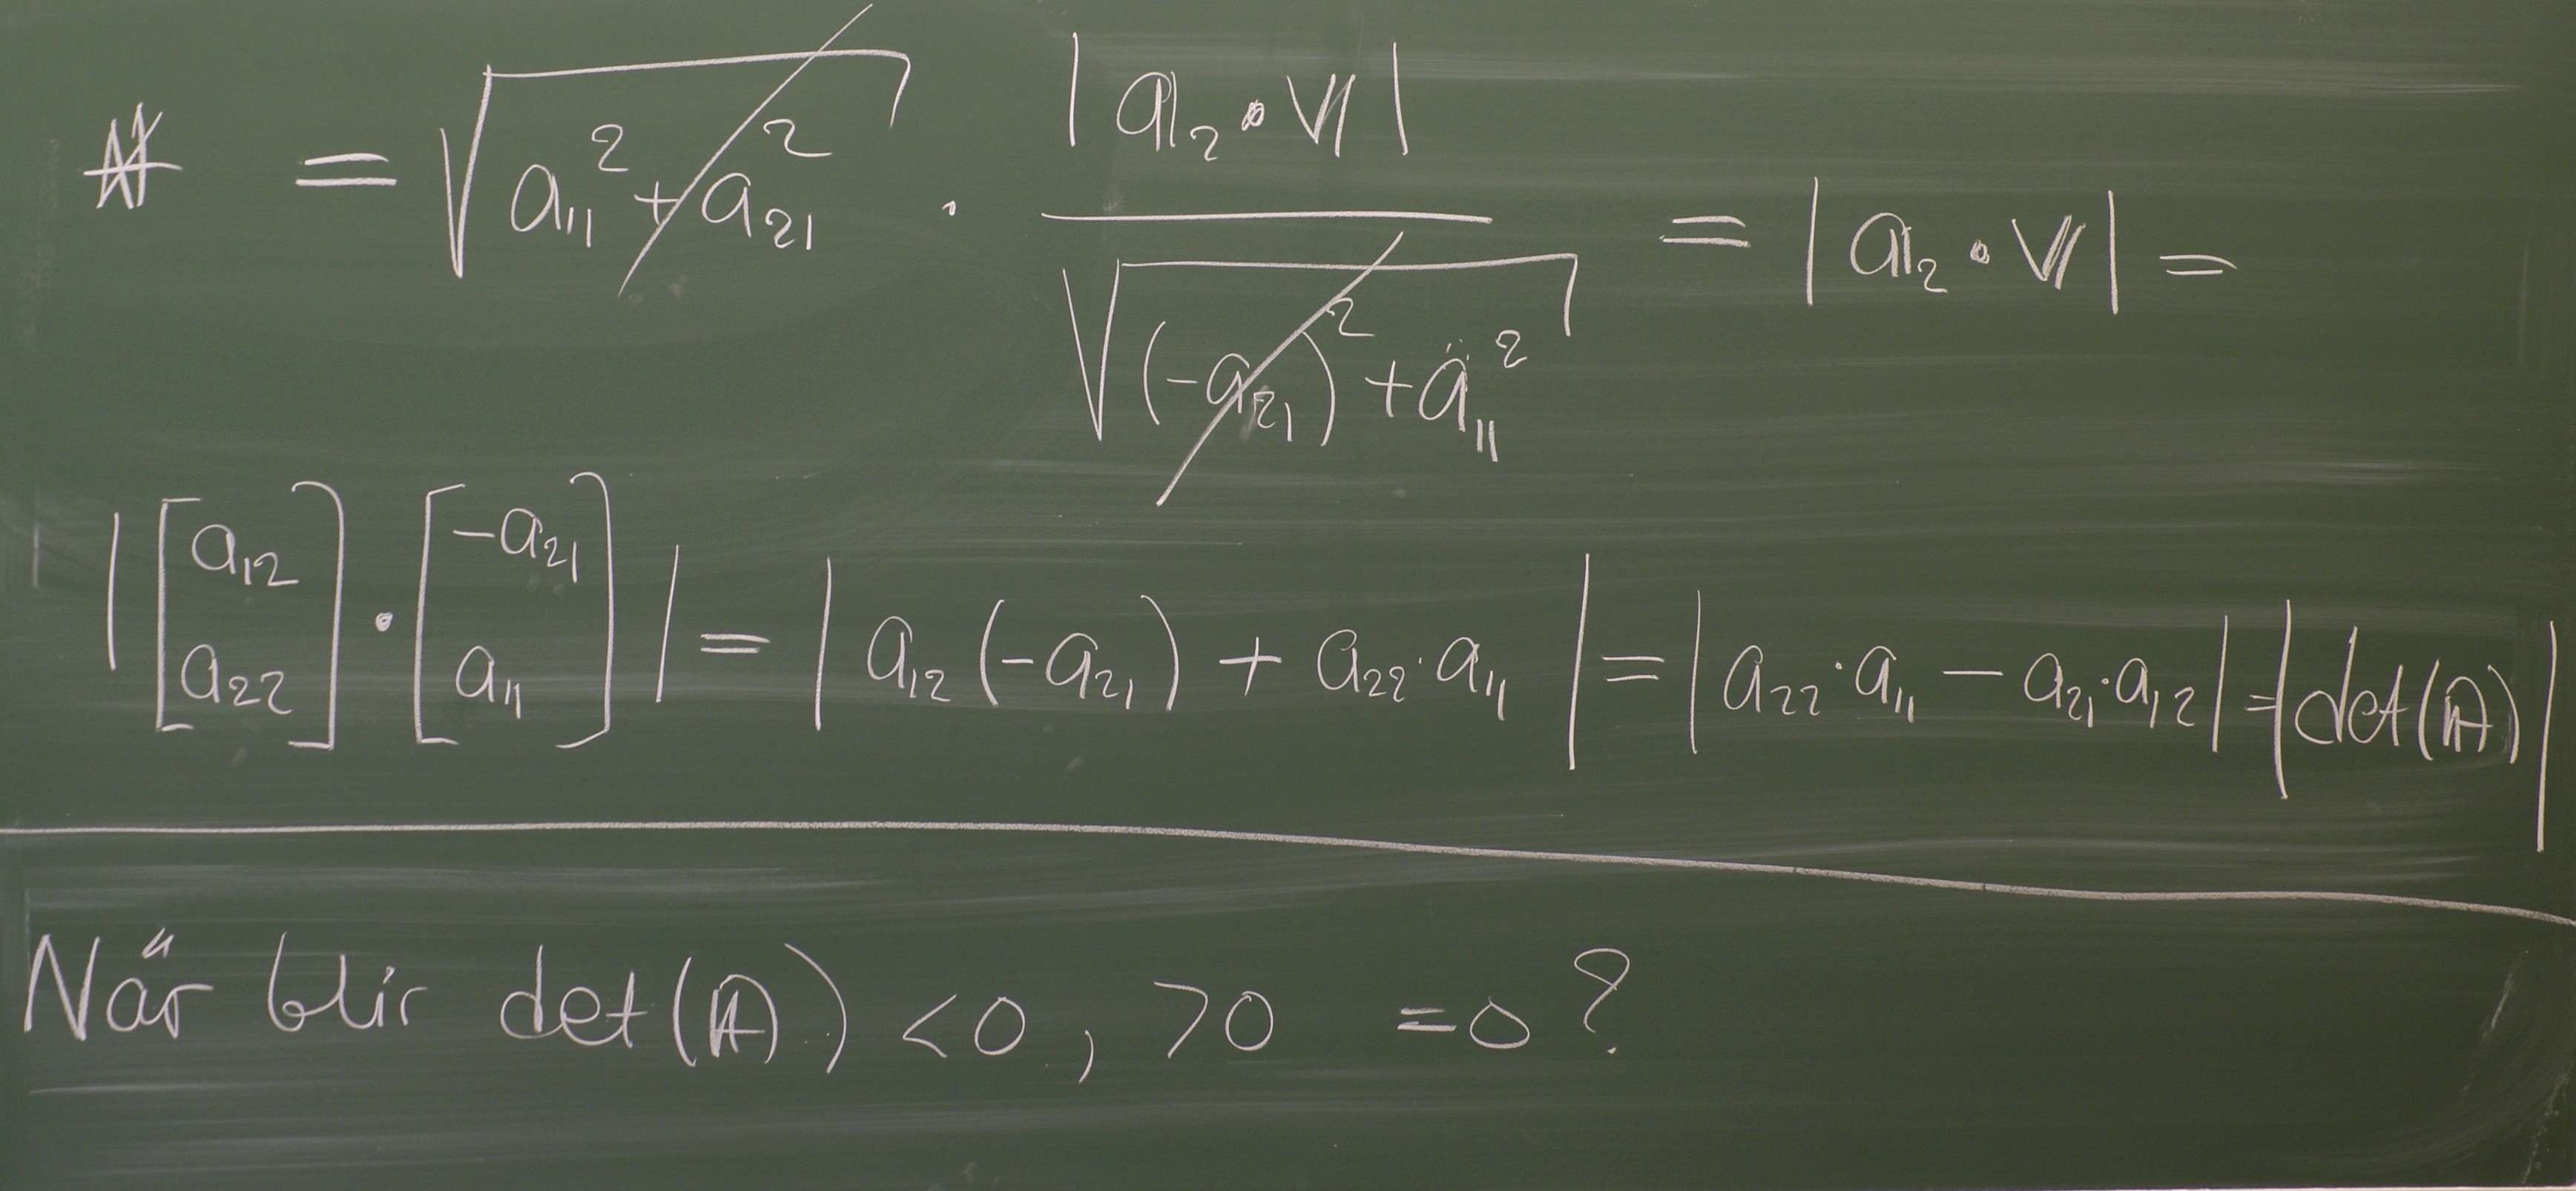 * = √(a₁₁² + a₂₁²) · |𝕒₂ • 𝕧| / √((-a₂₁)² + a₁₁²) = |𝕒₂ • 𝕧| =
|[a₁₂ a₂₂] • [-a₂₁ a₁₁]| = |a₁₂(-a₂₁) + a₂₂·a₁₁| = |a₂₂·a₁₁ - a₂₁·a₁₂| = |det(𝔸)|
När blir det(𝔸) <0, >0 =0?